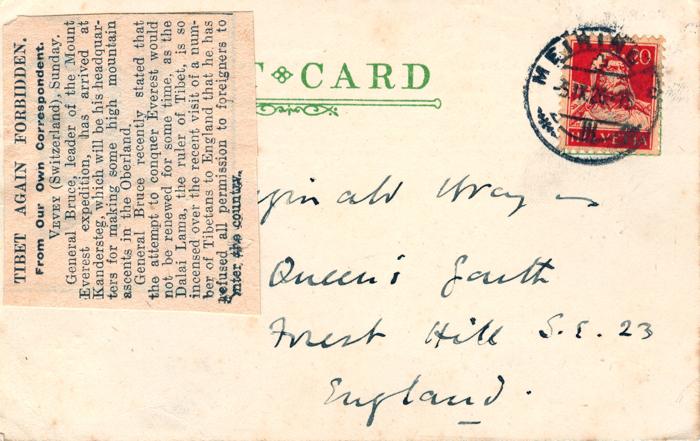 TIBET AGAIN FORBIDDEN.
From Our Own Correspondent.
VEVEY (Switzerland), Sunday.
General Bruce, leader of the Mount
Everest expedition, has arrived at
Kandersteg, which will be his headquar-
ters for making some high mountain
ascents in the Oberland.
General Bruce recently stated that
the attempt to conquer Everest would
not be renewed for some time, as the
Dalai Lama, the ruler of Tibet, is so
incensed over the recent visit of a num-
ber of Tibetans to England that he has
refused all permission to foreigners to
enter the country.
T CARD
20
HELVETIA
ginald Wray
Queen's Garth
Forest Hill S.E. 23
England.